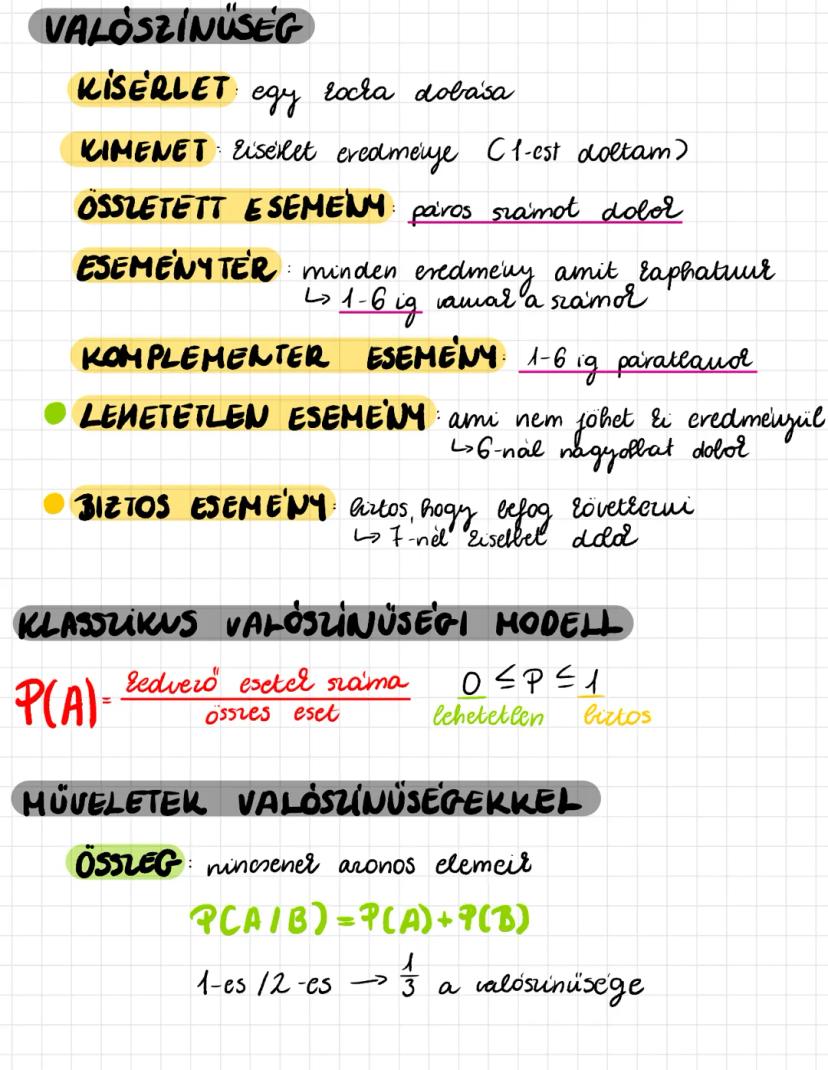 VALÓSZÍNŰSÉG
KÍSÉRLET: egy kocka dobása
KIMENET: kísérlet eredménye (1-est dobtam)
ÖSSZETETT ESEMÉNY: páros számot dobok
ESEMÉNYTÉR: minden eredmény amit kaphatunk
↳ 1-6 ig vannak a számok
KOMPLEMENTER ESEMÉNY: 1-6 ig páratlanok
LEHETETLEN ESEMÉNY: ami nem jöhet ki eredményül
↳ 6-nál nagyobbat dobok
BIZTOS ESEMÉNY: biztos, hogy befog következni
↳ 7-nél kisebbet dobok
KLASSZIKUS VALÓSZÍNŰSÉGI MODELL
P(A) = kedvező esetek száma / összes eset 0 ≤ P ≤ 1
lehetetlen biztos
MŰVELETEK VALÓSZÍNŰSÉGEKKEL
ÖSSZEG: nincsenek azonos elemeik
P(A/B) = P(A) + P(B)
1-es / 2-es → 1/3 a valószínűsége